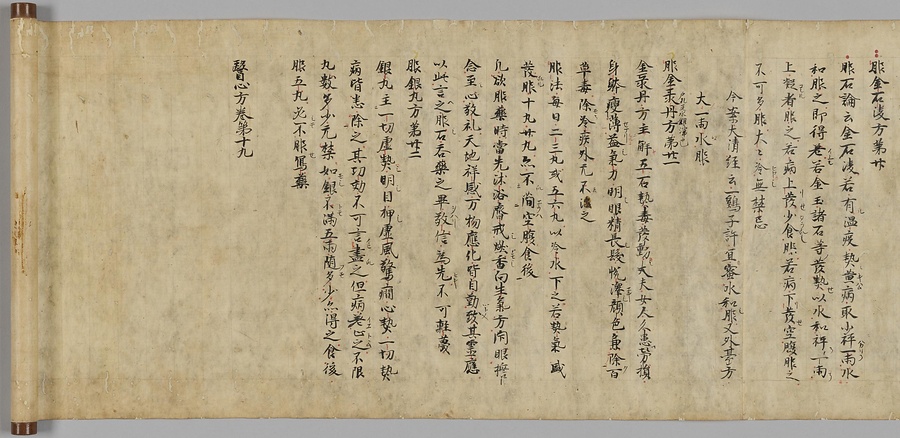 服金石凌方第廿
服石論云金石凌若有温疫熱黄病取小祥一兩水
和服之即得老若金玉諸石等發熱以水和祥一兩
上殺者服之若病上發少食服若病下發空腹服之
不可多服大〻冷無禁忌
今案大清経云一鶏子許耳蜜水和服又外䑓方
大一兩水服
服金液丹方第廿一
金液丹方主解五石熱毒發動丈夫女人久患勞損
身體瘦薄益氣力明眼精長髮悦澤顔色兼除百
草毒除冷疾外元不禁之
服法每日二三丸或五六丸以冷水下之若熱氣盛
發服十九廿丸無不簡空腹食後
凡欲服藥時當先沐浴齋戒燒香向生氣方閉眼
念至心敬礼天地祥感万物應化皆自勤致其霊應
以此言之服石吞藥之畢敬信為先不可輕蔑
服銀丸方第廿二
銀丸主一切虚熱明目抑虚風驚癇心熱一切熱
病皆悉除之其功効不可言盡之但病老止之不限
丸數多少元禁如銀不滿五兩随多少亦得之食後
服五丸必不服篤藥
醫心方卷第十九